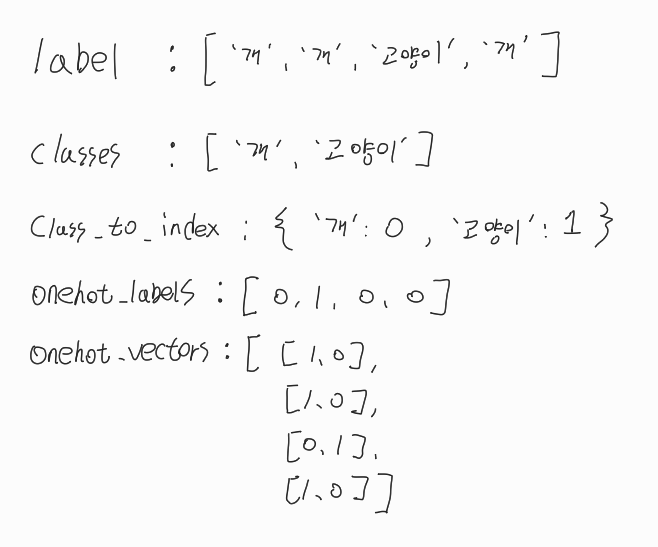 label : ['개', '개', '고양이', '개']
classes : ['개', '고양이']
Class_to_index : { '개': 0 , '고양이': 1 }
onehot_labels : [ 0, 1, 0, 0 ]
onehot_vectors : [ [1, 0],
[1, 0],
[0, 1],
[1, 0] ]